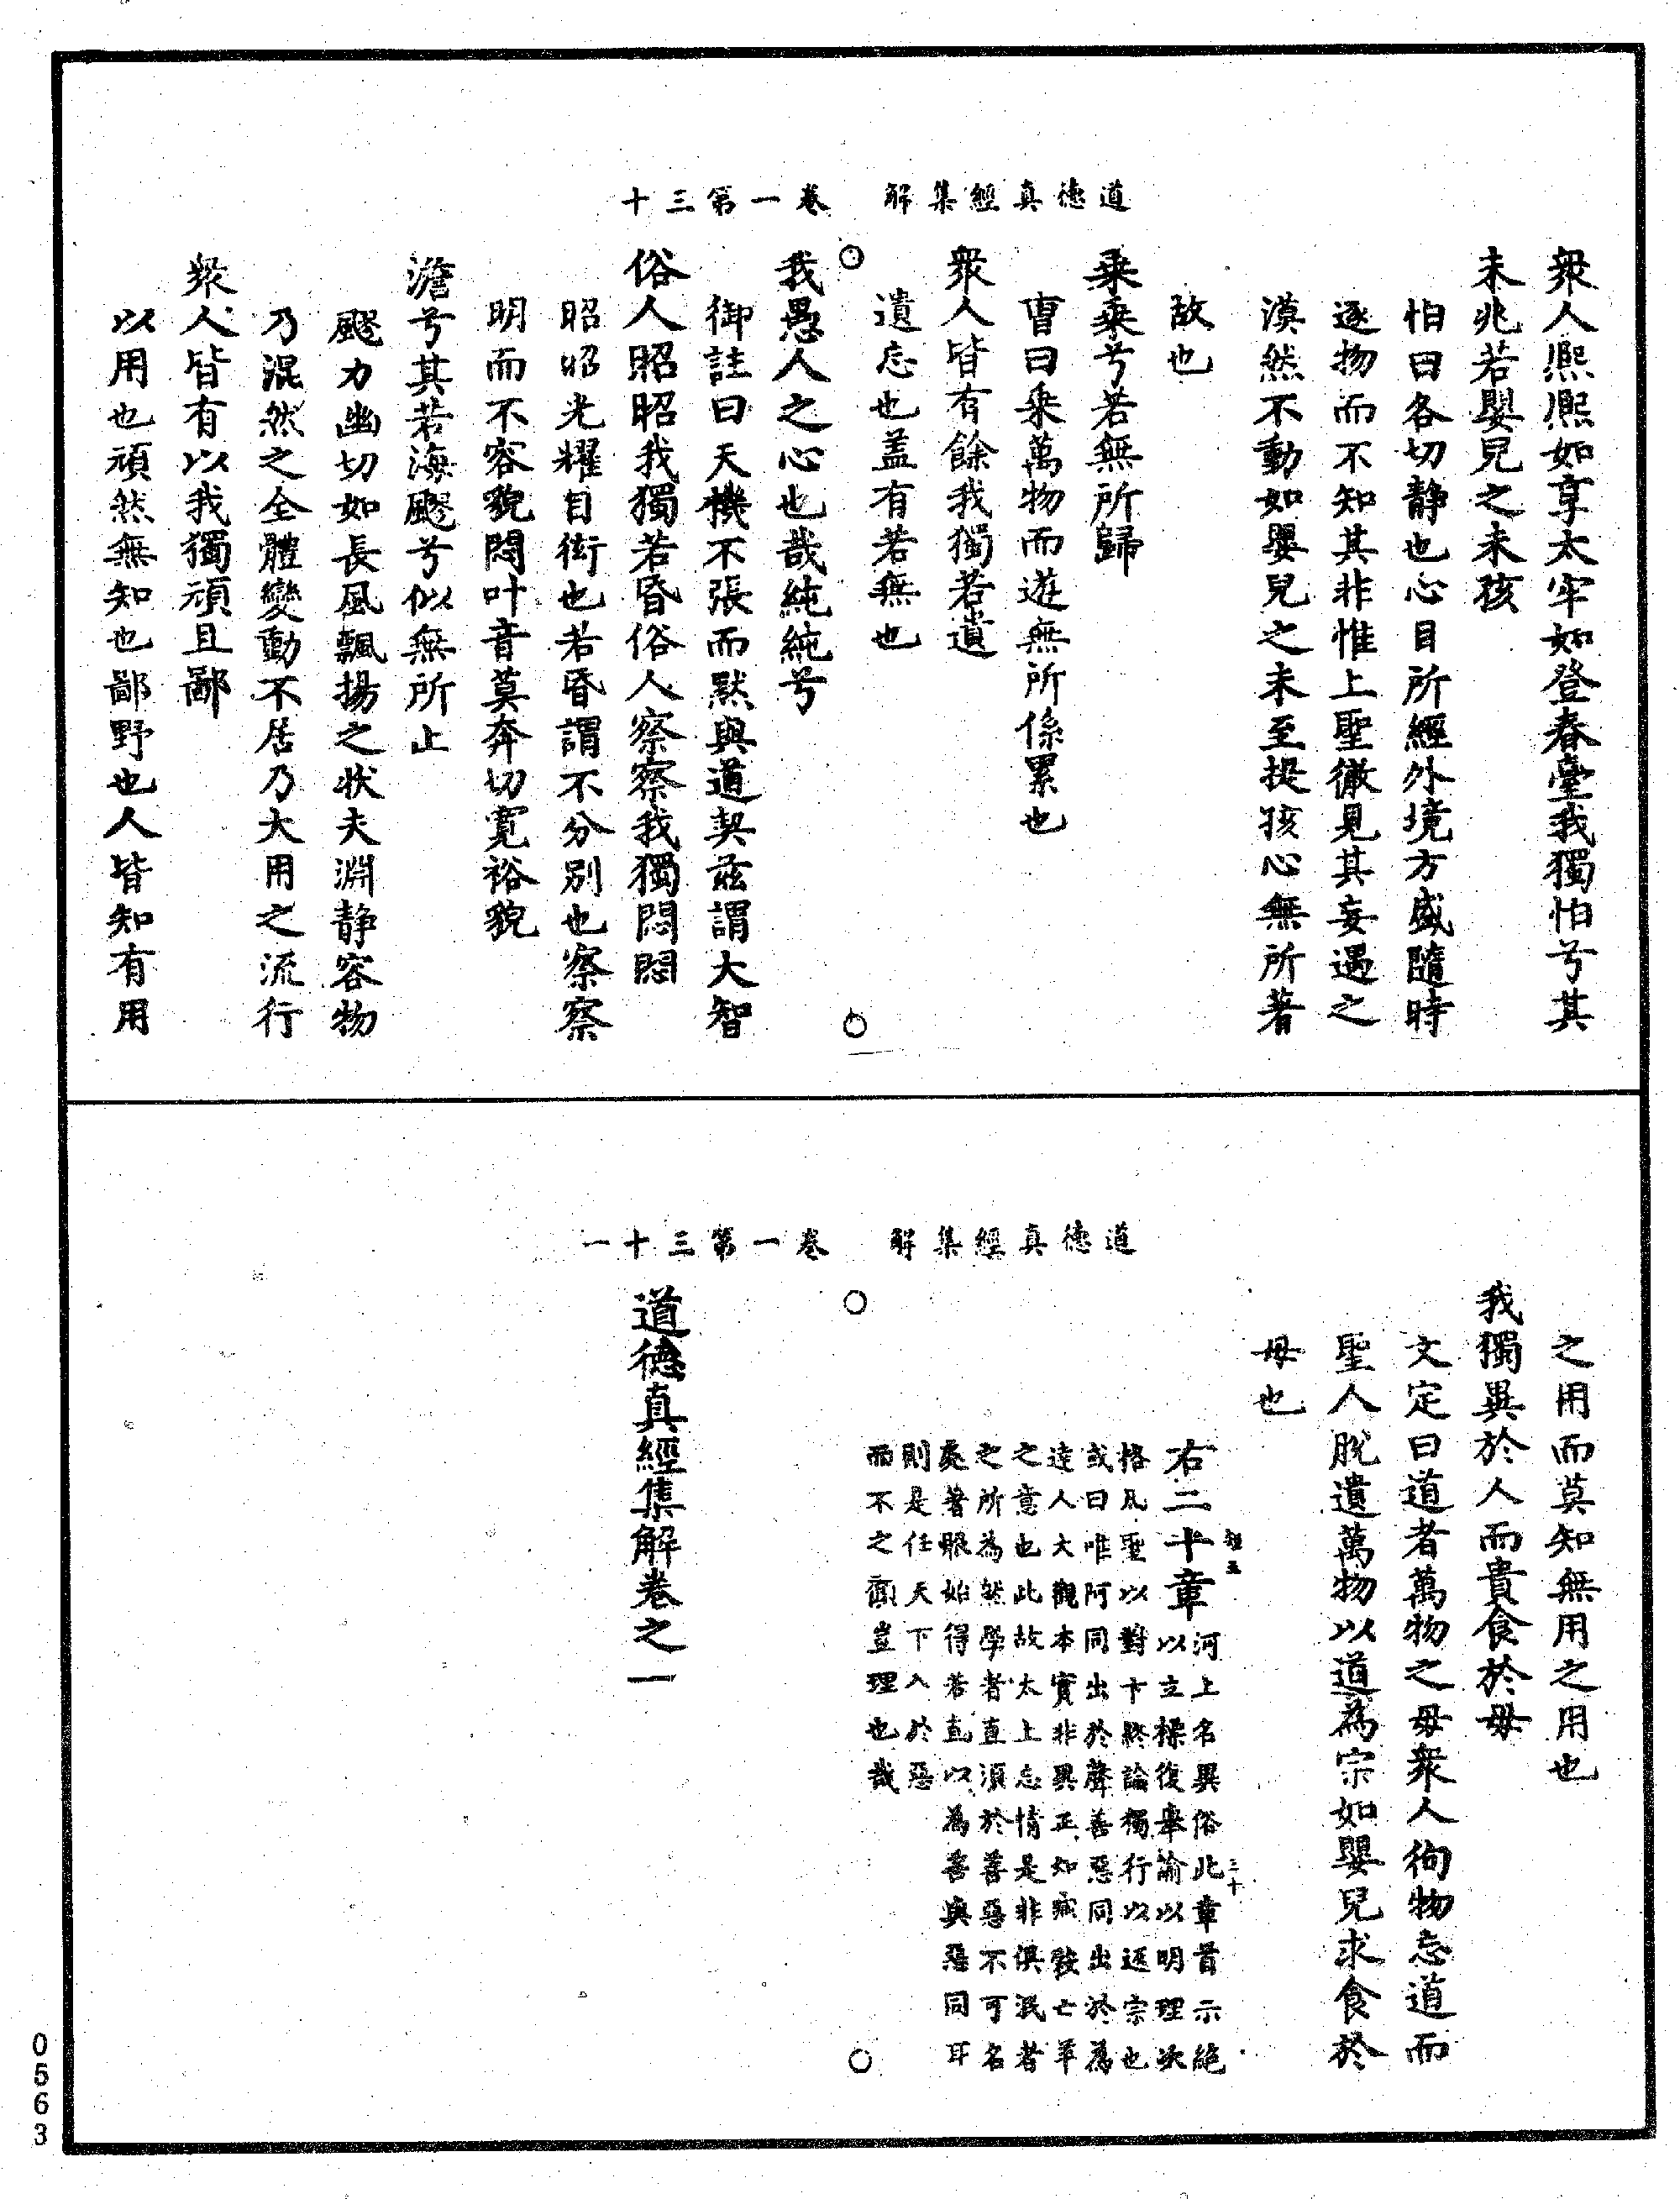 道德真經集解 卷一第三十
衆人熈熈如享太牢如登春臺我獨怕兮其
未兆若嬰兒之未孩
怕曰各切靜也心目所經外境方盛隨時
逐物而不知其非惟上聖徹見其妄遇之
漠然不動如嬰兒之未至提孩心無所著
故也
乗乗兮若無所歸
曹曰乗萬物而遊無所係累也
衆人皆有餘我獨若遺
遺忘也盖有若無也
我愚人之心也哉純純兮
御註曰天機不張而黙與道契兹謂大智
俗人昭昭我獨若昏俗人察察我獨悶悶
昭昭光耀自衒也若昏謂不分別也察察
明而不容貌悶叶音莫奔切寛裕貌
澹兮其若海飂兮似無所止
飂力幽切如長風飄揚之狀夫淵静容物
乃混然之全體變動不居乃大用之流行
衆人皆有以我獨頑且鄙
以用也頑然無知也鄙野也人皆知有用
道德真經集解 卷一第三十一
之用而莫知無用之用也
我獨異於人而貴食於母
文定曰道者萬物之母衆人徇物忘道而
聖人脫遺萬物以道為宗如嬰兒求食於
母也
右二十章
河上名異俗此章首示絶
以立標復舉論以明理次
格凡聖以對卞終論獨行以返宗也
或曰唯阿同出於聲善惡同出於為
達人大觀本實非異正知臧穀亡羊
之意也此故太上忘情是非俱泯者
之所為然學者直須於善惡不可名
處著眼始得若直以為善與惡同耳
則是任天下入於惡
而不之衈豈理也哉
道德真經集解卷之一
0563